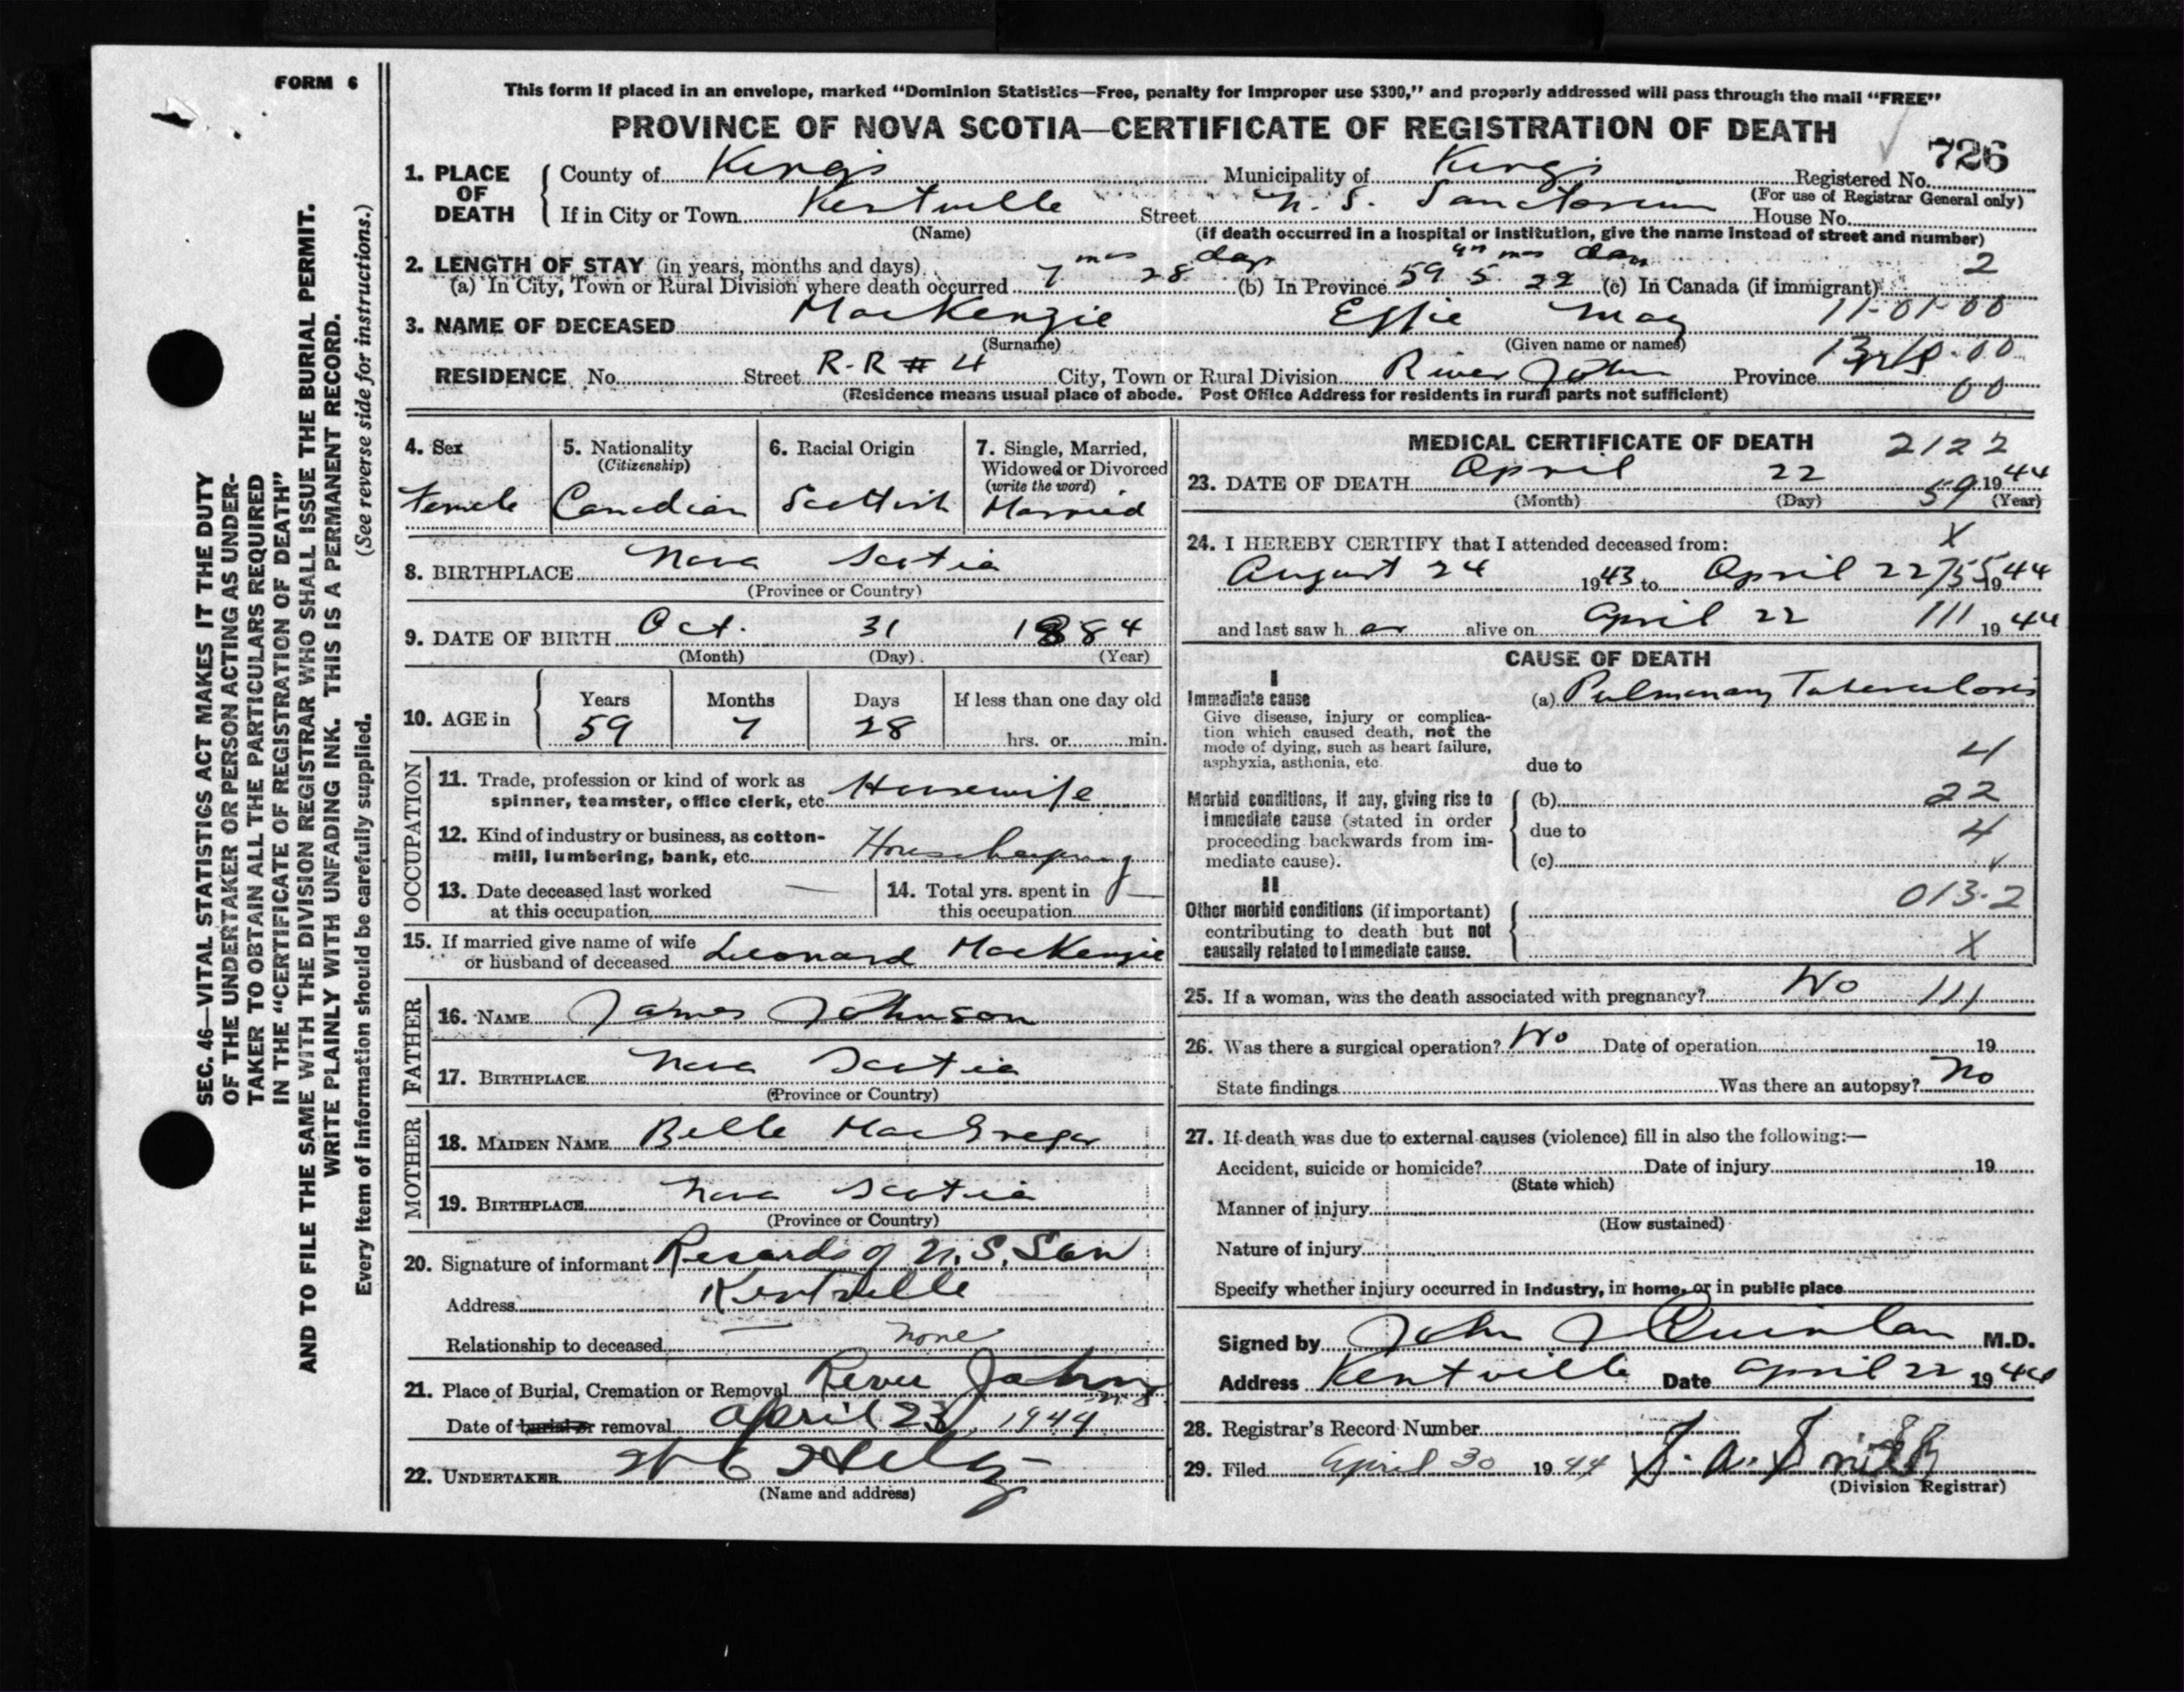 FORM 6
SEC. 46—VITAL STATISTICS ACT MAKES IT THE DUTY
OF THE UNDERTAKER OR PERSON ACTING AS UNDER-
TAKER TO OBTAIN ALL THE PARTICULARS REQUIRED
IN THE "CERTIFICATE OF REGISTRATION OF DEATH"
AND TO FILE THE SAME WITH THE DIVISION REGISTRAR WHO SHALL ISSUE THE BURIAL PERMIT.
WRITE PLAINLY WITH UNFADING INK. THIS IS A PERMANENT RECORD.
Every item of information should be carefully supplied. (See reverse side for instructions.)
This form if placed in an envelope, marked "Dominion Statistics—Free, penalty for improper use $300," and properly addressed will pass through the mail "FREE"
PROVINCE OF NOVA SCOTIA—CERTIFICATE OF REGISTRATION OF DEATH
726
1. PLACE OF DEATH County of Kings Municipality of Kings Registered No.
(For use of Registrar General only)
If in City or Town Kentville Street N. S. Sanctorium House No.
(Name) (if death occurred in a hospital or institution, give the name instead of street and number)
2. LENGTH OF STAY (in years, months and days)
(a) In City, Town or Rural Division where death occurred 7 mos 28 days (b) In Province 59 yrs 5 mos 22 days (c) In Canada (if immigrant) 2
3. NAME OF DECEASED MacKenzie Effie May 11-01-00
(Surname) (Given name or names)
RESIDENCE No. Street R-R # 4 City, Town or Rural Division River John Province
(Residence means usual place of abode. Post Office Address for residents in rural parts not sufficient) 00
4. Sex
Female
5. Nationality
(Citizenship)
Canadian
6. Racial Origin
Scottish
7. Single, Married,
Widowed or Divorced
(write the word)
Married
8. BIRTHPLACE Nova Scotia
(Province or Country)
9. DATE OF BIRTH Oct. 31 1884
(Month) (Day) (Year)
10. AGE in Years Months Days If less than one day old
59 7 28 hrs. or min.
OCCUPATION
11. Trade, profession or kind of work as
spinner, teamster, office clerk, etc. Housewife
12. Kind of industry or business, as cotton-
mill, lumbering, bank, etc. Housekeeping
13. Date deceased last worked
at this occupation —
14. Total yrs. spent in
this occupation —
15. If married give name of wife
or husband of deceased Leonard MacKenzie
FATHER
16. NAME James Johnson
17. BIRTHPLACE Nova Scotia
(Province or Country)
MOTHER
18. MAIDEN NAME Belle MacGregor
19. BIRTHPLACE Nova Scotia
(Province or Country)
20. Signature of informant Records of N.S. San
Address Kentville
Relationship to deceased — none
21. Place of Burial, Cremation or Removal River John N.S.
Date of burial or removal April 23, 1944
22. UNDERTAKER
(Name and address)
MEDICAL CERTIFICATE OF DEATH 2122
23. DATE OF DEATH April 22 1944
(Month) (Day) 59 (Year)
24. I HEREBY CERTIFY that I attended deceased from: X
August 24 1943 to April 22 1944
and last saw her alive on April 22 111 1944
CAUSE OF DEATH
I
Immediate cause
Give disease, injury or complica-
tion which caused death, not the
mode of dying, such as heart failure,
asphyxia, asthenia, etc.
(a) Pulmonary Tuberculosis
due to 4
Morbid conditions, if any, giving rise to
immediate cause (stated in order
proceeding backwards from im-
mediate cause).
(b) 22
due to 4
(c)
II
Other morbid conditions (if important)
contributing to death but not
causally related to immediate cause.
013-2
X
25. If a woman, was the death associated with pregnancy? No 111
26. Was there a surgical operation? No Date of operation 19
State findings Was there an autopsy? No
27. If death was due to external causes (violence) fill in also the following:—
Accident, suicide or homicide? Date of injury 19
(State which)
Manner of injury
(How sustained)
Nature of injury
Specify whether injury occurred in industry, in home, or in public place
Signed by John J Quinlan M.D.
Address Kentville Date April 22 1944
28. Registrar's Record Number
29. Filed April 30 1944
(Division Registrar)